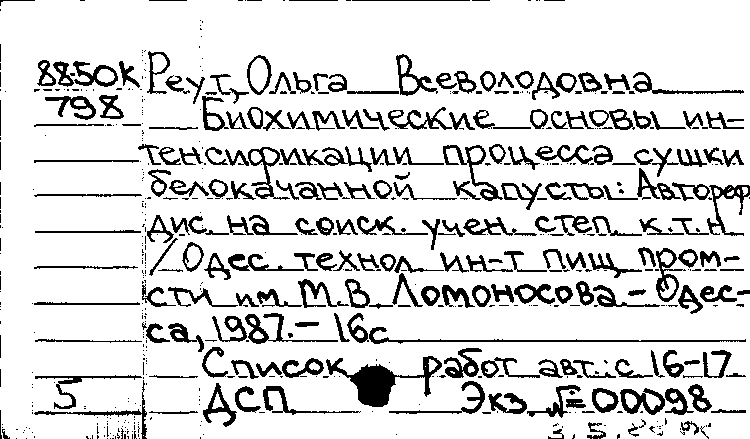 88-50К Реут, Ольга Всеволодовна
798 Биохимические основы ин-
тенсификации процесса сушки
белокачанной капусты: Автореф
дис. на соиск. учен. степ. к.т.н
/Одес. технол. ин-т пищ. пром-
сти им. М.В. Ломоносова.-Одес-
са, 1987.-16с
Список работ авт.: с. 16-17
5 ДСП. Экз. №=00098
3.5.